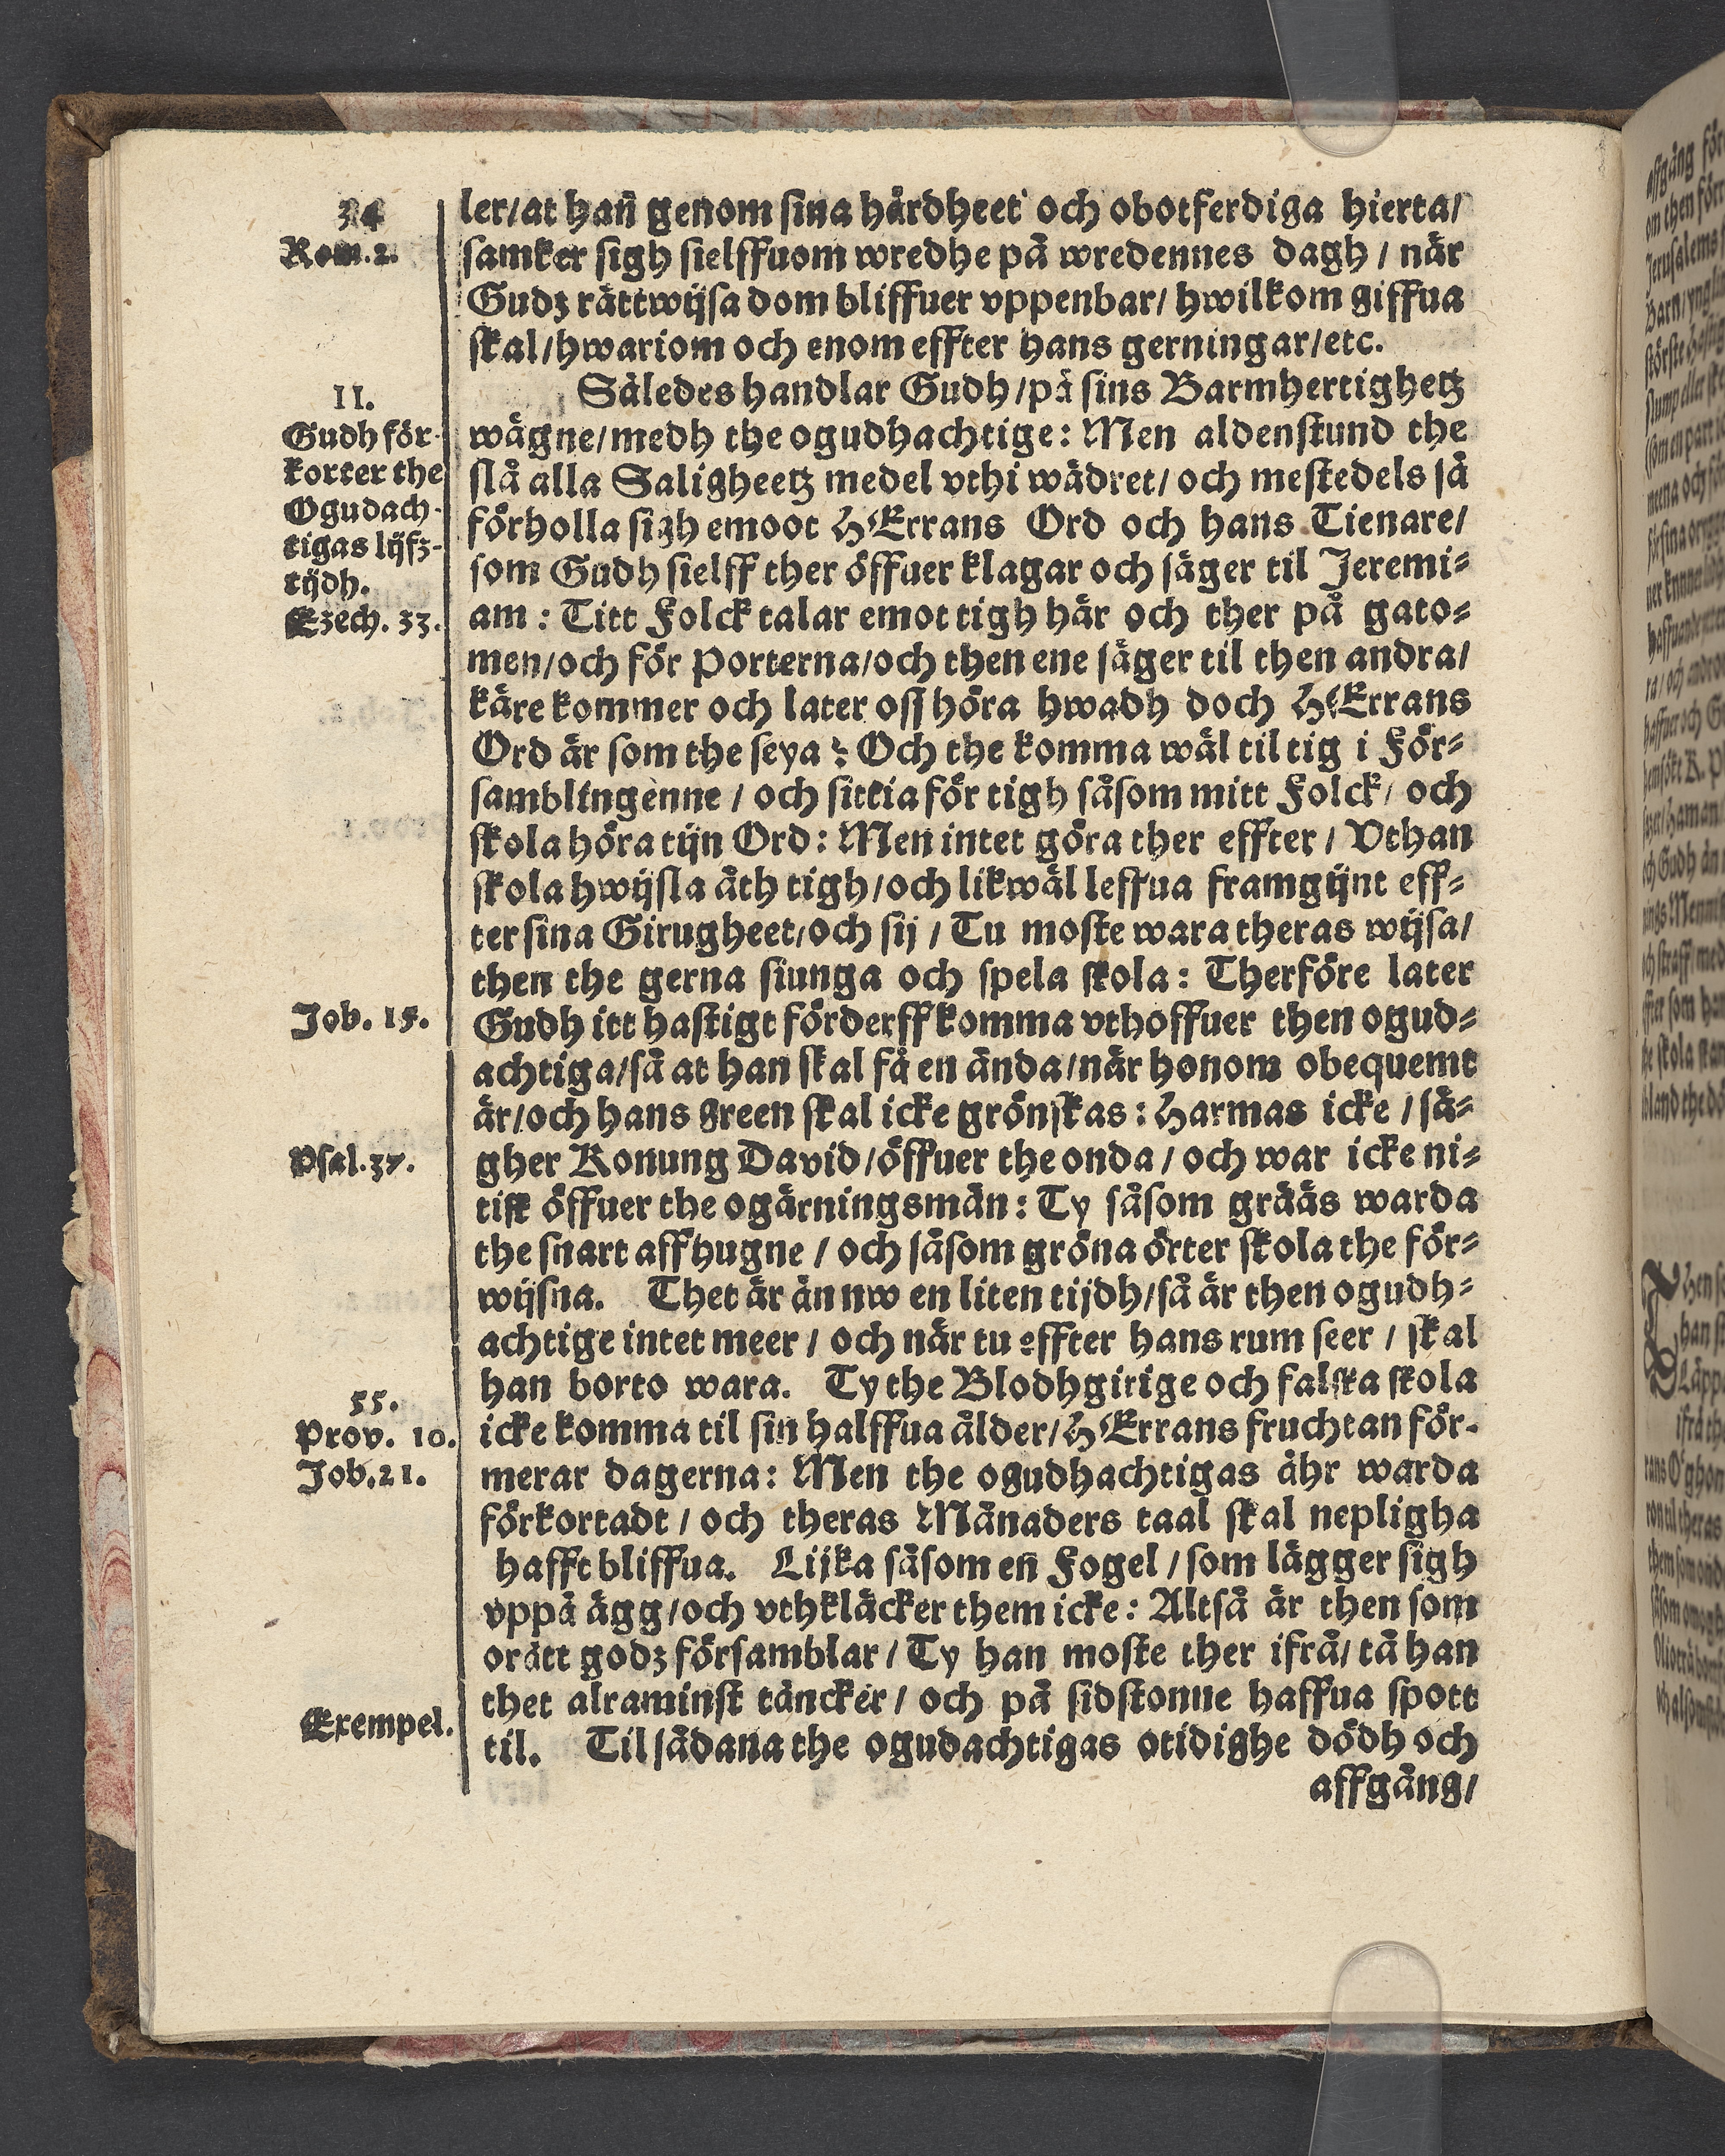 34
Rom. 2.
II.
Gudh för-
korter the
Ogudach-
tigas lijfz-
tijdh.
Ezech. 33.
Job. 15.
Psal. 37.
55.
Prov. 10.
Job. 21.
Exempel.
ler/at han̄ genom sina hårdheet och obotferdiga hierta/
samker sigh sielffuom wredhe på wredennes dagh / när
Gudz rättwijsa dom bliffuer vppenbar/ hwilkom giffua
skal/hwariom och enom effter hans gerningar/etc.
Således handlar Gudh/på sins Barmhertighetz
wägne/medh the ogudhachtige: Men aldenstund the
slå alla Saligheetz medel vthi wädret/ och mestedels så
förholla sigh emoot HErrans Ord och hans Tienare/
som Gudh sielff ther öffuer klagar och säger til Jeremi=
am : Titt Folck talar emot tigh här och ther på gato=
men/och för Porterna/och then ene säger til then andra/
käre kommer och later oss höra hwadh doch HErrans
Ord är som the seya ? Och the komma wäl til tig i För=
samblingenne / och sittia för tigh såsom mitt Folck/ och
skola höra tijn Ord: Men intet göra ther effter / Vthan
skola hwijsla åth tigh/och likwäl leffua framgijnt eff=
ter sina Girugheet/och sij / Tu moste wara theras wijsa/
then the gerna siunga och spela skola: Therföre later
Gudh itt hastigt förderff komma vthöffuer then ogud=
achtiga/så at han skal få en ända/när honom obequemt
är/och hans green skal icke grönskas: Harmas icke / sä=
gher Konung David/öffuer the onda / och war icke ni=
tisk öffuer the ogärningsmän: Ty såsom grääs warda
the snart affhugne / och såsom gröna örter skola the för=
wijsna. Thet är än nw en liten tijdh/så är then ogudh=
achtige intet meer / och när tu effter hans rum seer / skal
han borto wara. Ty the Blodhgirige och falska skola
icke komma til sin halffua ålder/HErrans fruchtan för-
merar dagerna: Men the ogudhachtigas åhr warda
förkortadt / och theras Månaders taal skal nepligha
hafft bliffua. Lijka såsom en̄ Fogel / som lägger sigh
vppå ägg/och vthkläcker them icke: Altså är then som
orätt godz församblar / Ty han moste ther ifrå/ tå han
thet alraminst täncker/ och på sidstonne haffua spott
til. Til sådana the ogudachtigas otidighe dödh och
affgång/